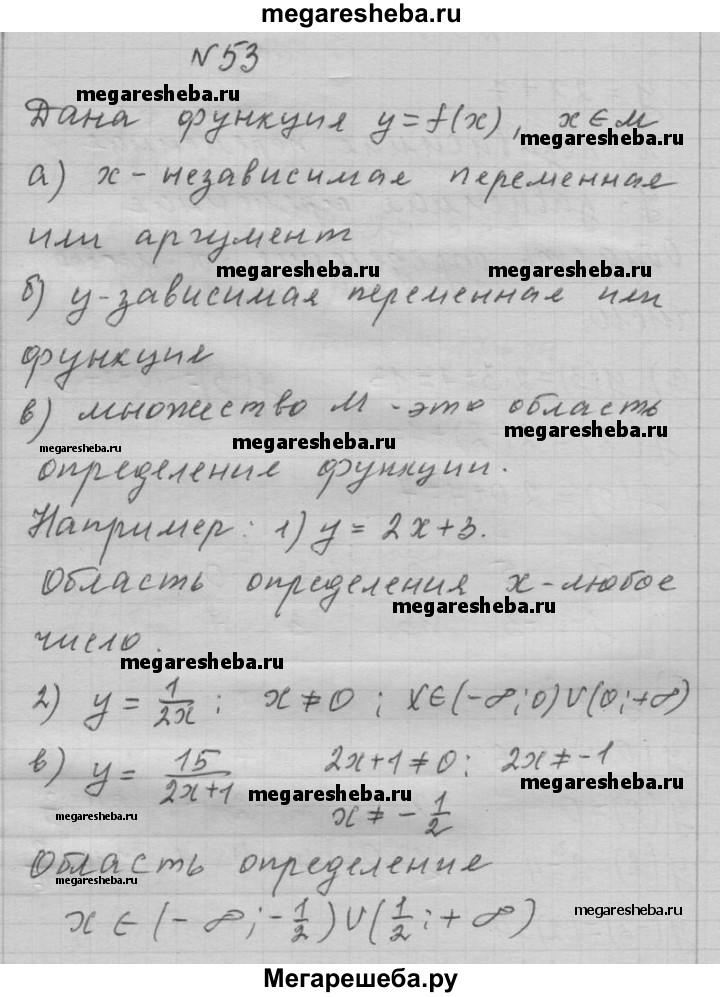 megaresheba.ru
N 53
megaresheba.ru
Дана функция y=f(x), x∈M
megaresheba.ru
а) x-независимая переменная
или аргумент
megaresheba.ru megaresheba.ru
б) y-зависимая переменная или
функция
в) множество M -это область
megaresheba.ru megaresheba.ru megaresheba.ru
определение функции.
Например: 1) y = 2x+3.
Область определения x-любое
megaresheba.ru
число.
megaresheba.ru
2) y = 1/2x ; x≠0 ; x∈(-∞;0)∪(0;+∞)
в) y = 15/2x+1 2x+1≠0; 2x≠-1
megaresheba.ru megaresheba.ru
megaresheba.ru x≠-1/2
Область определение
megaresheba.ru
x∈(-∞;-1/2)∪(1/2;+∞)
megaresheba.ru megaresheba.ru
Мегарешеба.ру